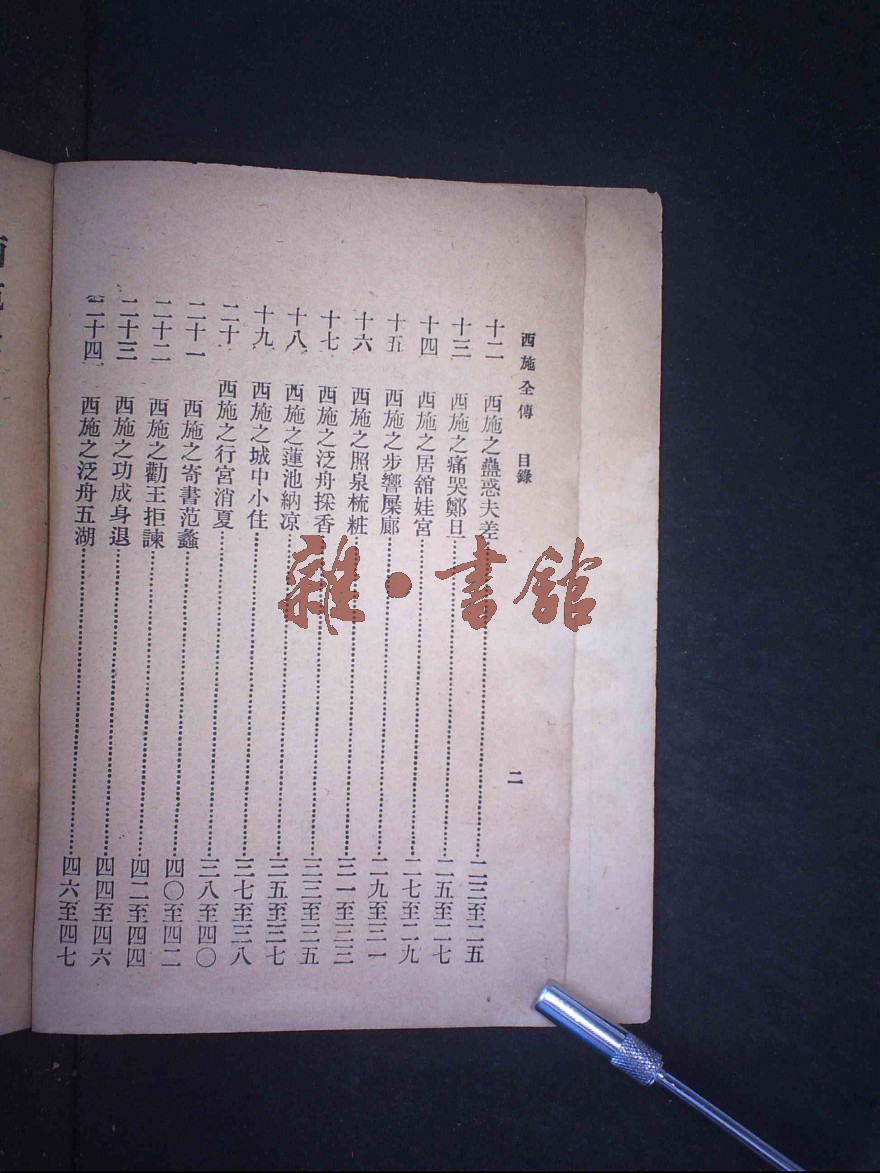 西施全傳 目錄 二
十二 西施之蠱惑夫差 二三至二五
十三 西施之痛哭鄭旦 二五至二七
十四 西施之居舘娃宮 二七至二九
十五 西施之步響屧廊 二九至三一
十六 西施之照泉梳粧 三一至三三
十七 西施之泛舟採香 三三至三五
十八 西施之蓮池納凉 三五至三七
十九 西施之城中小住 三七至三八
二十 西施之行宮消夏 三八至四〇
二十一 西施之寄書范蠡 四〇至四二
二十二 西施之勸王拒諫 四二至四四
二十三 西施之功成身退 四四至四六
二十四 西施之泛舟五湖 四六至四七
雜·書館